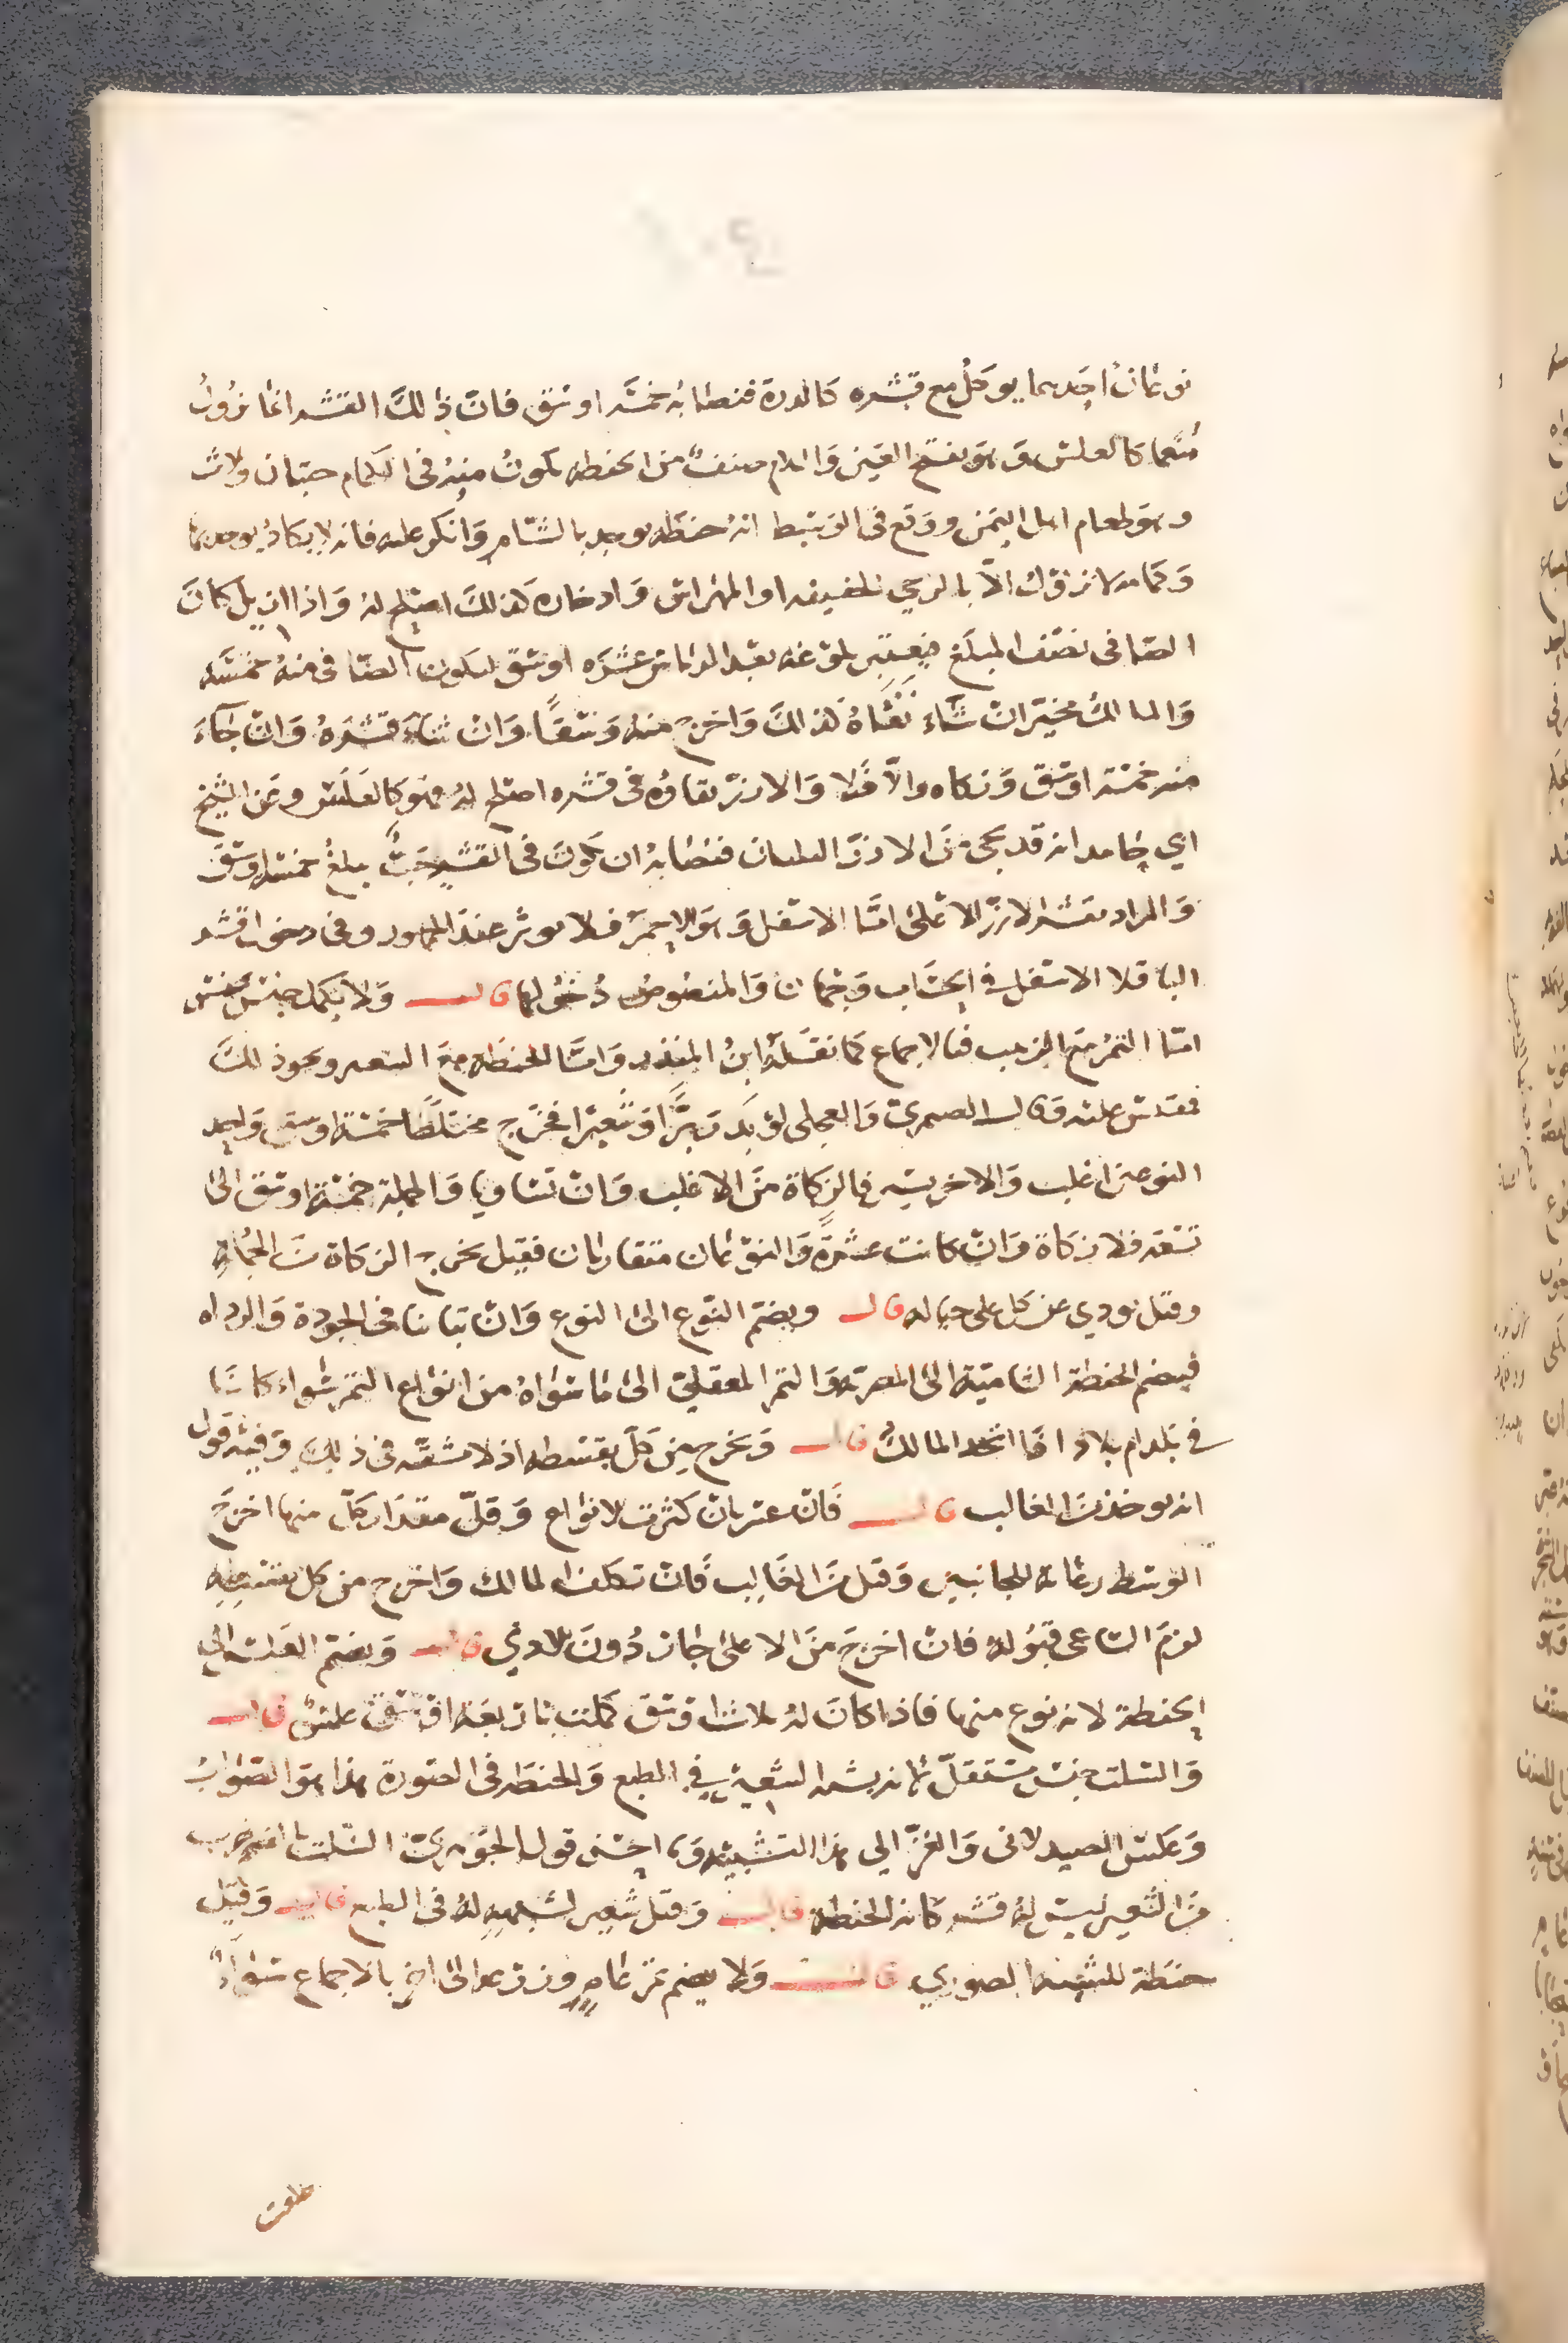 نوعان احدهما يوكل مع قشره كالذرة فنصابه خمسة اوسق فان ذلك القشر انما يزول
كالعلس وهو بفتح العين واللام صنف من الحنطة يكون منه في الكمام حبتان وثلاث
وهو طعام اهل اليمن ووقع في الوسيط انه حنطة يوجد بالشام وانكر عليه فانه لا يكاد يوجد بها
وكمامه لا يزول الا بالرحي الخفيفة او المهراس وادخاره كذلك اصلح له واذا ازيل كان
الصافي نصف المبلغ فيعتبر بلوغه بعد الدياس عشرة اوسق ليكون الصافي منه خمسة
والمالك مخير ان شاء نقاه كذلك واخرج منه وسقا وان شاء قشره وان جاء
منه خمسة اوسق زكاه والا فلا والارز بقاؤه في قشره اصلح له فهو كالعلس وعن الشيخ
ابي حامد انه قد يجئ من الارز الثلثان فنصابه ان يكون في القشر حب يبلغ خمسة اوسق
والمراد بقشر الارز الاعلى اما الاسفل وهو الاحمر فلا يوثر عند الجمهور وفي دخول قشر
الباقلا الاسفل في الحساب وجهان والمنصوص دخولها قال ولا يكمل جنس بجنس
اما التمر مع الزبيب فبالاجماع كما نقله ابن المنذر واما الحنطة مع الشعير ونحو ذلك
فقدس عليه وقال الصيمري والعجلي لو بذر برا وشعيرا فخرج مختلطا خمسة اوسق واحد
النوعين اغلب والاخر يسير فالزكاة من الاغلب وان تساويا والجملة خمسة اوسق الى
تسعة فلا زكاة وان كانت عشرة والنوعان متقاربان فقيل يخرج الزكاة من الجملة
وقيل يودي عن كل على حياله قال ويضم النوع الى النوع وان تباينا في الجودة والرداه
فيضم الحنطة الشامية الى المصرية والتمر المعقلي الى ما سواه من انواع التمر سواء كانا
في بلد ام بلاد اذا اتحد المالك قال ويخرج من كل بقسطه اذ لا مشقة في ذلك وفيه قول
انه يوخذ من الغالب قال فان عسر بان كثرت الانواع وقل مقدار كل منها اخرج
الوسط رعاية للجانبين وقيل من الغالب فان تكلف المالك واخرج من كل بقسطه
لزم الساعي قبوله فان اخرج من الاعلى جاز دون الادني قال ويضم العلس الى
الحنطة لانه نوع منها فاذا كان له ثلاثة اوسق كملت باربعة اوسق علس قال
والسلت جنس مستقل لانه يشبه الشعير في الطبع والحنطة في الصورة هذا هو الصواب
وعكس الصيدلاني والغزالي هذا التشبيه وما احسن قول الجوهري السلت بالضم ضرب
من الشعير ليس له قشر كانه الحنطة قال وقيل شعير لشبهه له في الطبع قال وقيل
حنطة للشبه الصوري قال ولا يضم تمر عام وزرعه الى اخر بالاجماع سواء